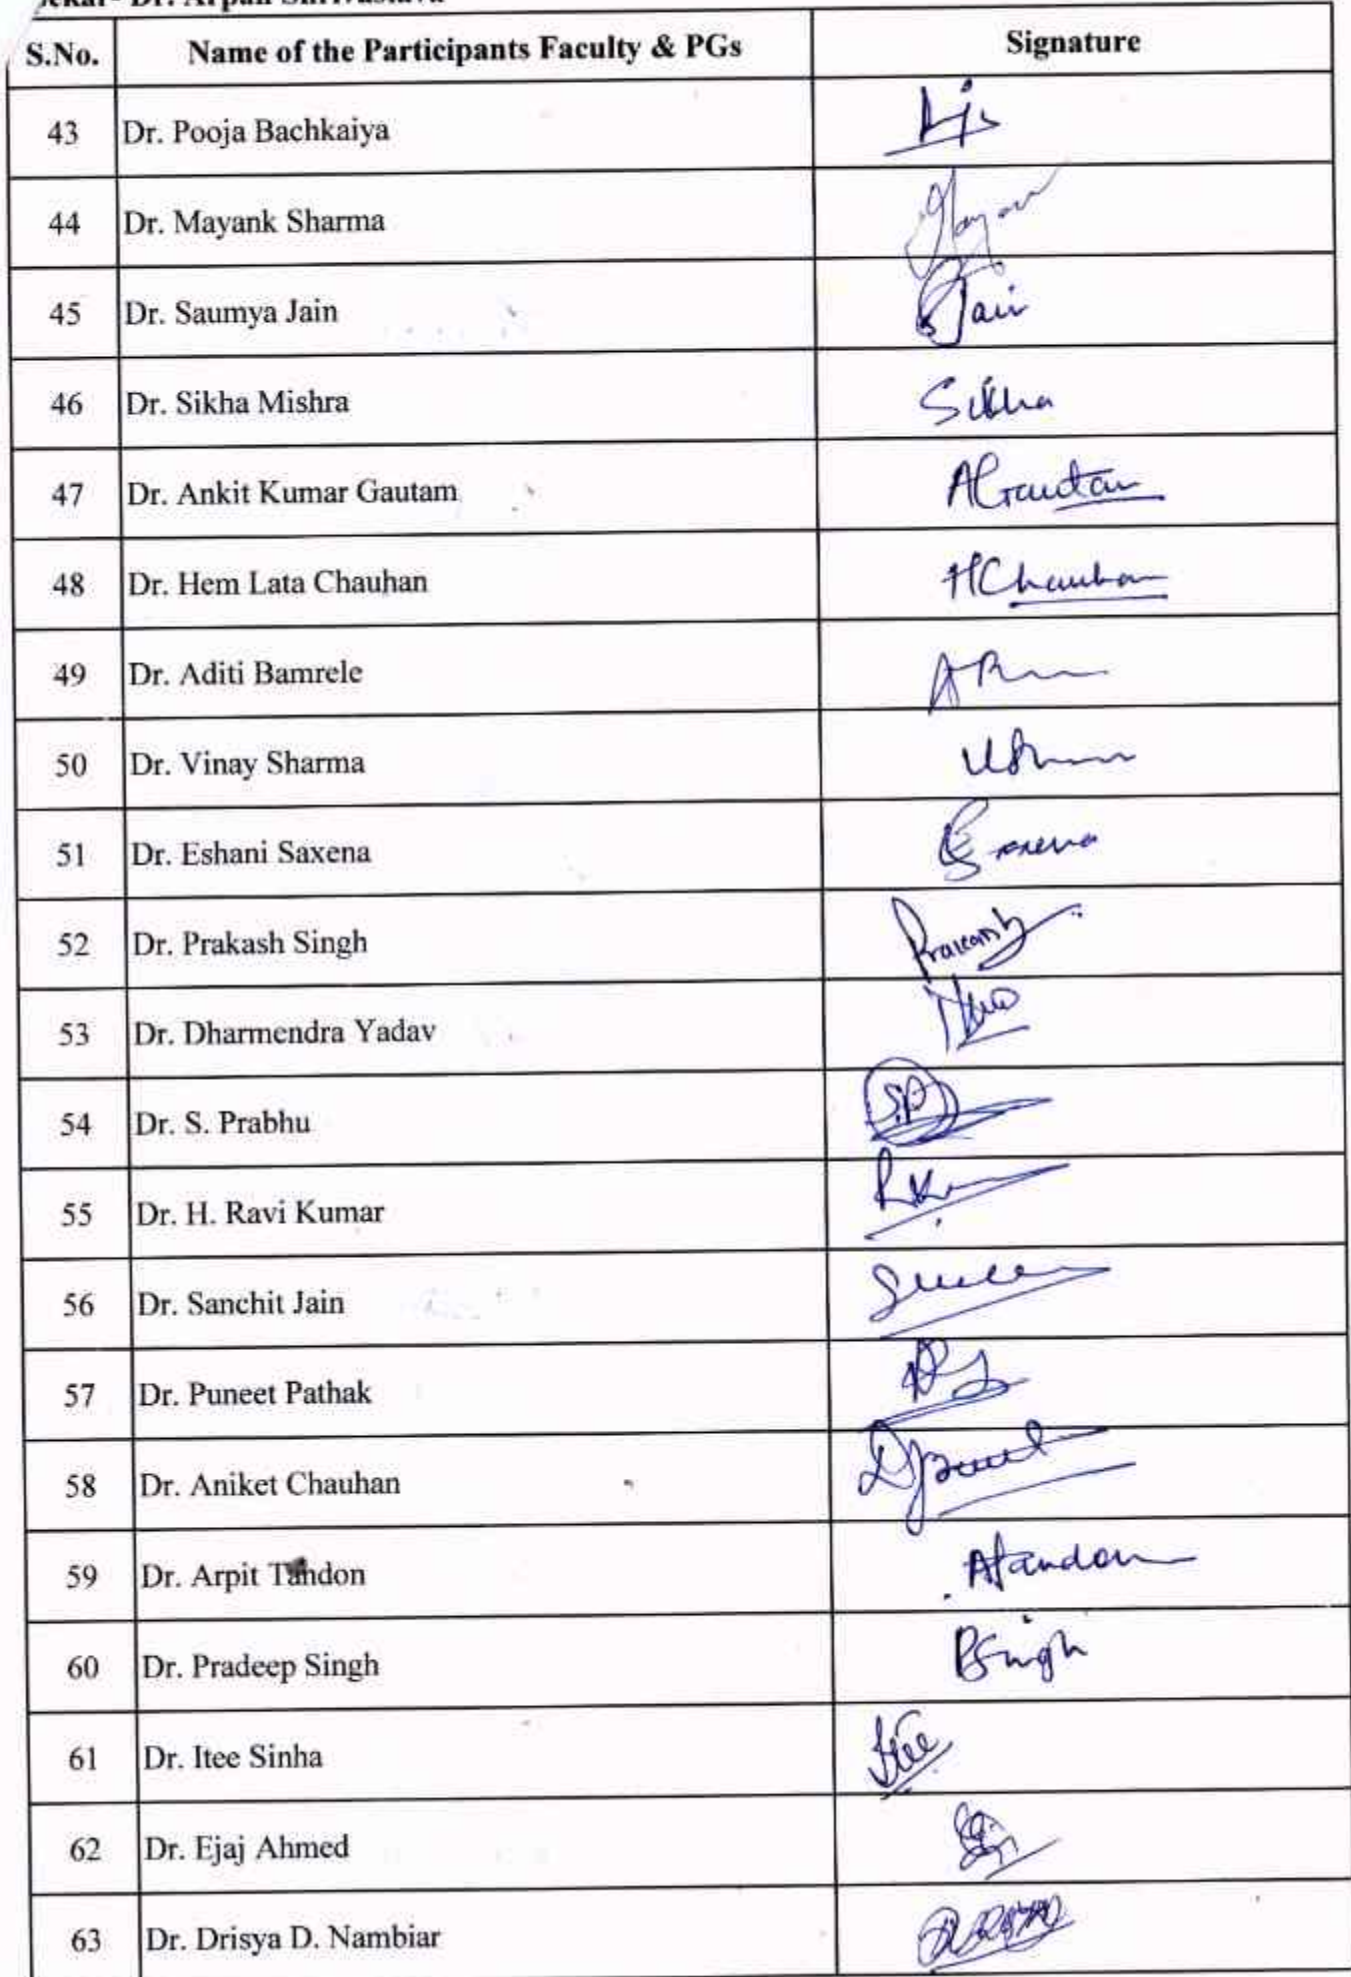 Dr. Arpan Shrivastava
S.No. Name of the Participants Faculty & PGs Signature
43 Dr. Pooja Bachkaiya
44 Dr. Mayank Sharma
45 Dr. Saumya Jain Jain
46 Dr. Sikha Mishra Sikha
47 Dr. Ankit Kumar Gautam AGautam
48 Dr. Hem Lata Chauhan HChauhan
49 Dr. Aditi Bamrele
50 Dr. Vinay Sharma
51 Dr. Eshani Saxena
52 Dr. Prakash Singh Prakash
53 Dr. Dharmendra Yadav
54 Dr. S. Prabhu S.P
55 Dr. H. Ravi Kumar
56 Dr. Sanchit Jain
57 Dr. Puneet Pathak
58 Dr. Aniket Chauhan
59 Dr. Arpit Tandon ATandon
60 Dr. Pradeep Singh PSingh
61 Dr. Itee Sinha Itee
62 Dr. Ejaj Ahmed
63 Dr. Drisya D. Nambiar